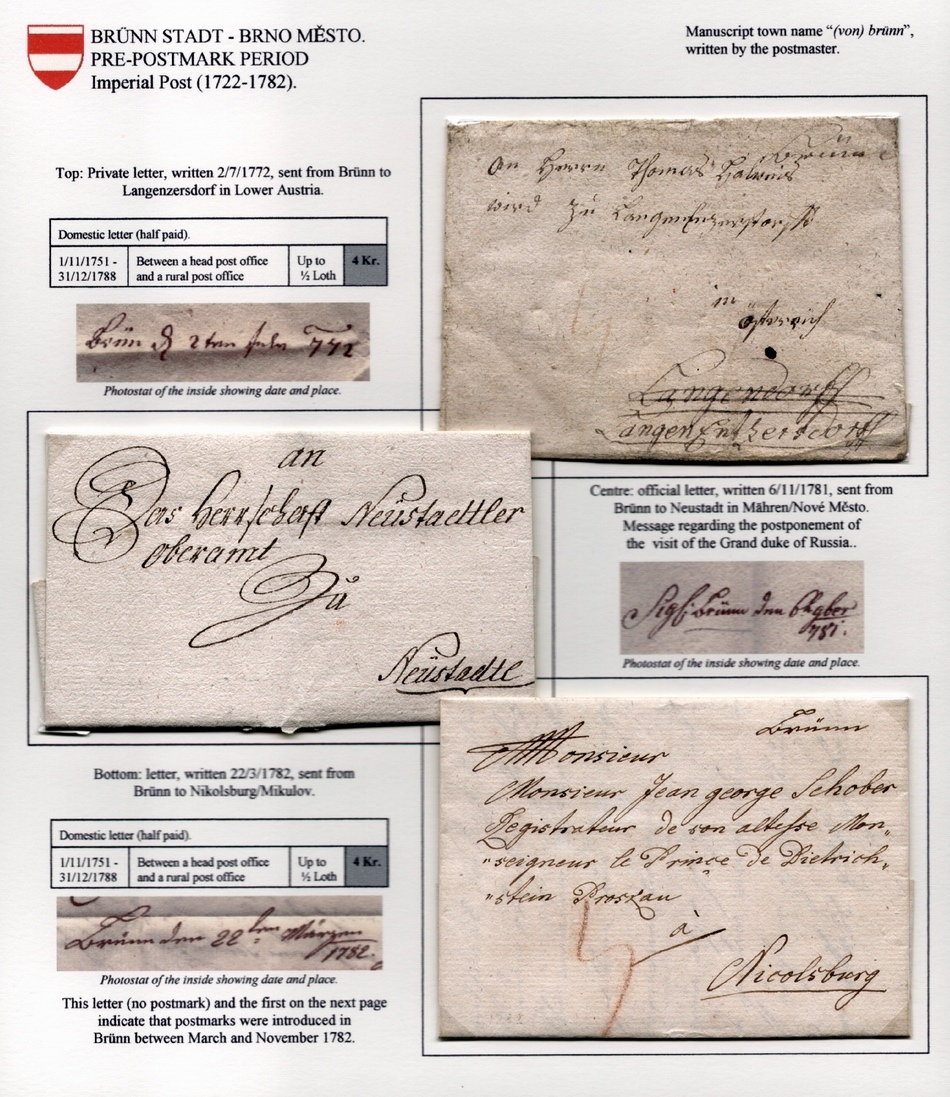 BRÜNN STADT - BRNO MĚSTO.
PRE-POSTMARK PERIOD
Imperial Post (1722-1782).
Manuscript town name “(von) brünn”,
written by the postmaster.
Top: Private letter, written 2/7/1772, sent from Brünn to
Langenzersdorf in Lower Austria.
Domestic letter (half paid).
1/11/1751 - Between a head post office Up to 4 Kr.
31/12/1788 and a rural post office ½ Loth
Brün
772
Photostat of the inside showing date and place.
An Herrn Thomas
wird zu
in
Österreich
Langendorff
Langen
an
Das Herrschaft Neustaedtler
Oberamt
Zu
Neustadtl
Centre: official letter, written 6/11/1781, sent from
Brünn to Neustadt in Mähren/Nové Město.
Message regarding the postponement of
the visit of the Grand duke of Russia..
Brünn den
781.
Photostat of the inside showing date and place.
Bottom: letter, written 22/3/1782, sent from
Brünn to Nikolsburg/Mikulov.
Domestic letter (half paid).
1/11/1751 - Between a head post office Up to 4 Kr.
31/12/1788 and a rural post office ½ Loth
Brünn den 22ten Märzen
1782.
Photostat of the inside showing date and place.
This letter (no postmark) and the first on the next page
indicate that postmarks were introduced in
Brünn between March and November 1782.
Brünn
Monsieur
Monsieur Jean george Schober
Registrateur de son altesse Mon„
„seigneur le Prince de Dietrich„
„stein Proskau
à
Nicolsburg